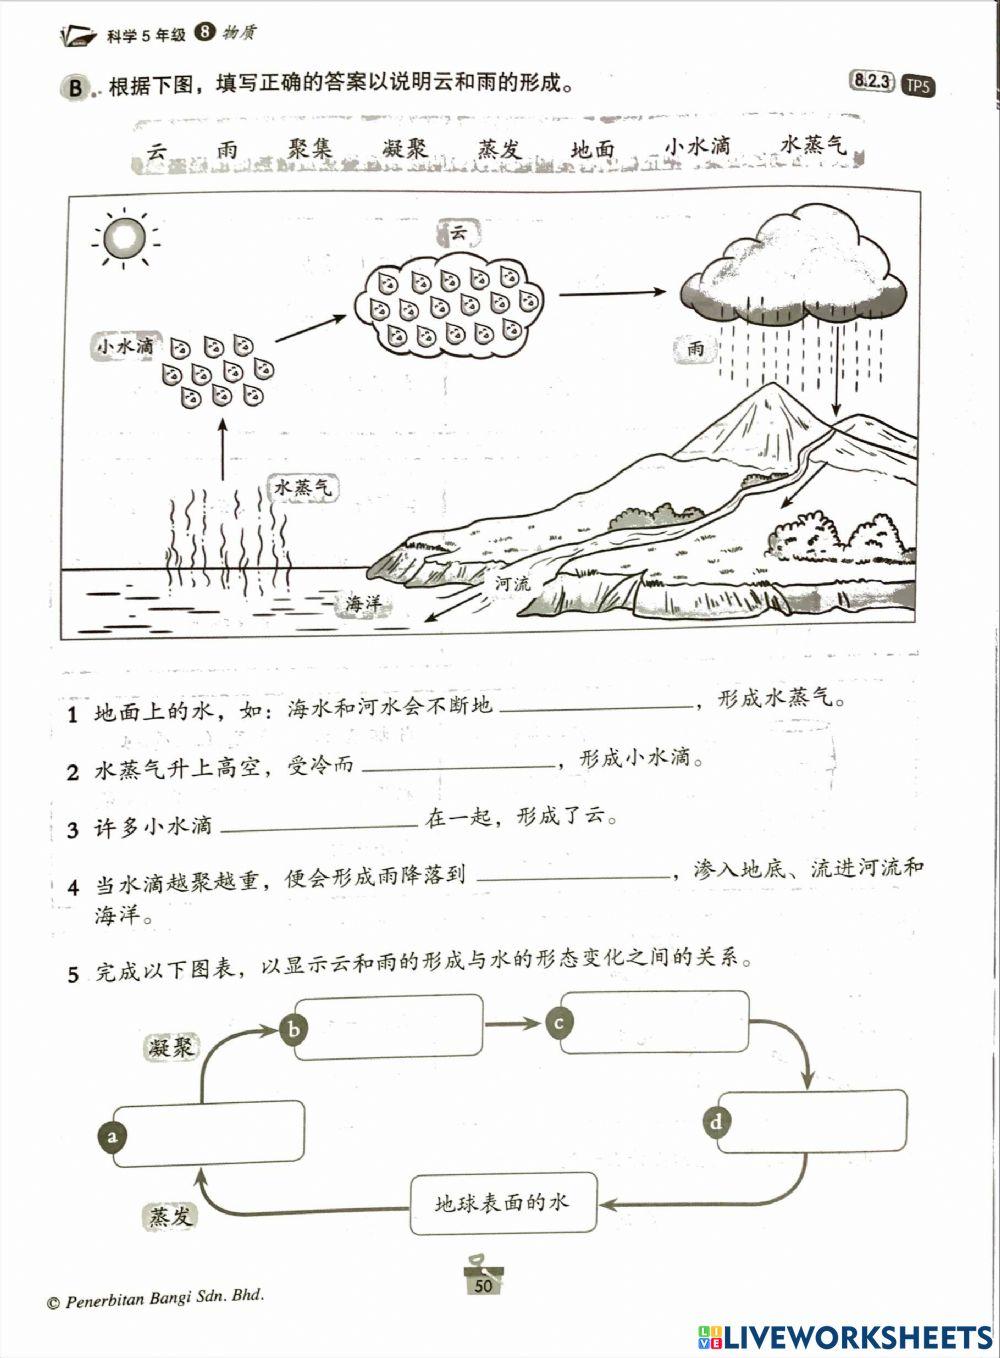 科学5年级 8 物质
B 根据下图，填写正确的答案以说明云和雨的形成。 8.2.3 TP5
云 雨 聚集 凝聚 蒸发 地面 小水滴 水蒸气
云
小水滴
雨
水蒸气
河流
海洋
1 地面上的水，如：海水和河水会不断地 ，形成水蒸气。
2 水蒸气升上高空，受冷而 ，形成小水滴。
3 许多小水滴 在一起，形成了云。
4 当水滴越聚越重，便会形成雨降落到 ，渗入地底、流进河流和
海洋。
5 完成以下图表，以显示云和雨的形成与水的形态变化之间的关系。
b c
凝聚
a d
地球表面的水
蒸发
50
© Penerbitan Bangi Sdn. Bhd.
LIVE LIVEWORKSHEETS